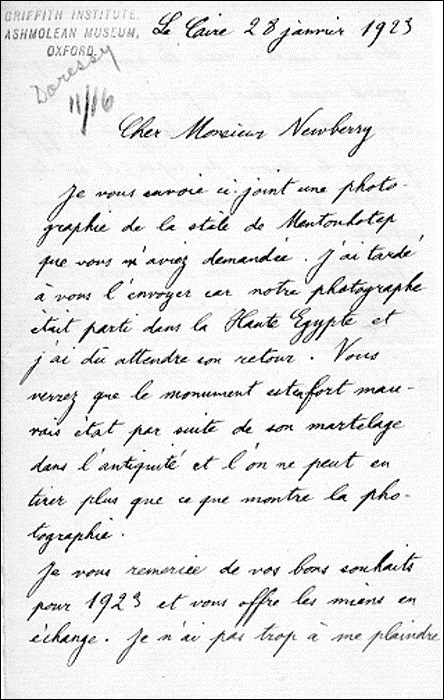 GRIFFITH INSTITUTE.
ASHMOLEAN MUSEUM,
OXFORD.
Le Caire 28 janvier 1923
Daressy
11/16
Cher Monsieur Newberry
Je vous envoie ci-joint une photo-
graphie de la stèle de Mentouhotep
que vous m'aviez demandée. J'ai tardé
à vous l'envoyer car notre photographe
était parti dans la Haute Egypte et
j'ai dû attendre son retour. Vous
verrez que le monument est en fort mau-
vais état par suite de son martelage
dans l'antiquité et l'on ne peut en
tirer plus que ce que montre la pho-
tographie.
Je vous remercie de vos bons souhaits
pour 1923 et vous offre les miens en
échange. Je n'ai pas trop à me plaindre